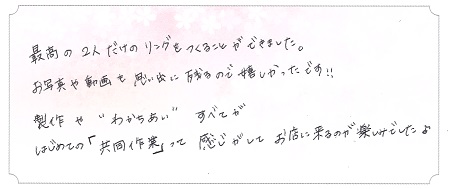 最高の2人だけのリングをつくることができました。
お写真や動画も思い出に残るので嬉しかったです!!
製作や"わかちあい" すべてが
はじめての「共同作業」って感じがしてお店に来るのが楽しみでしたよ